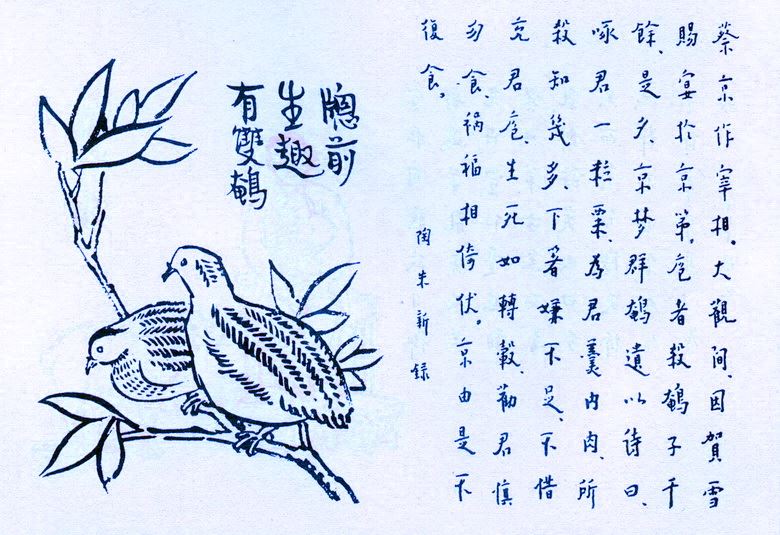 蔡京作宰相。大觀间、因賀雪
賜宴於京第。庖者殺鵪子千
餘、是夕、京梦群鵪遺以诗曰、
啄君一粒粟、為君羹内肉、所
殺知幾多、下箸嫌不足、不惜
充君庖、生死如轉轂、勸君慎
勿食、祸福相倚伏。京由是不
復食。
陶朱新録
牕前
生趣
有雙鵪